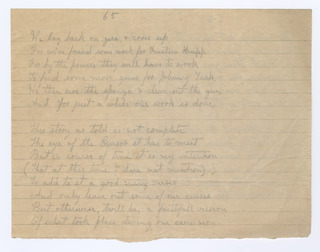 65
We day back on gun & cover up
For we've found some work for Fraulien Krupp
For by the powers they will have to work
To find some more guns for Johnny Turk
We then use the sponge & clean out the gun
And for just a while our work is done
The story as told is not complete
The eye of the Censor it has to meet
But in course of time it is my intention
(That at this time I dare not mention)
To add to it a good many verses
And only leave out some of our curses
But otherwise, twill be, a faithful version
Of what took place during our excursion